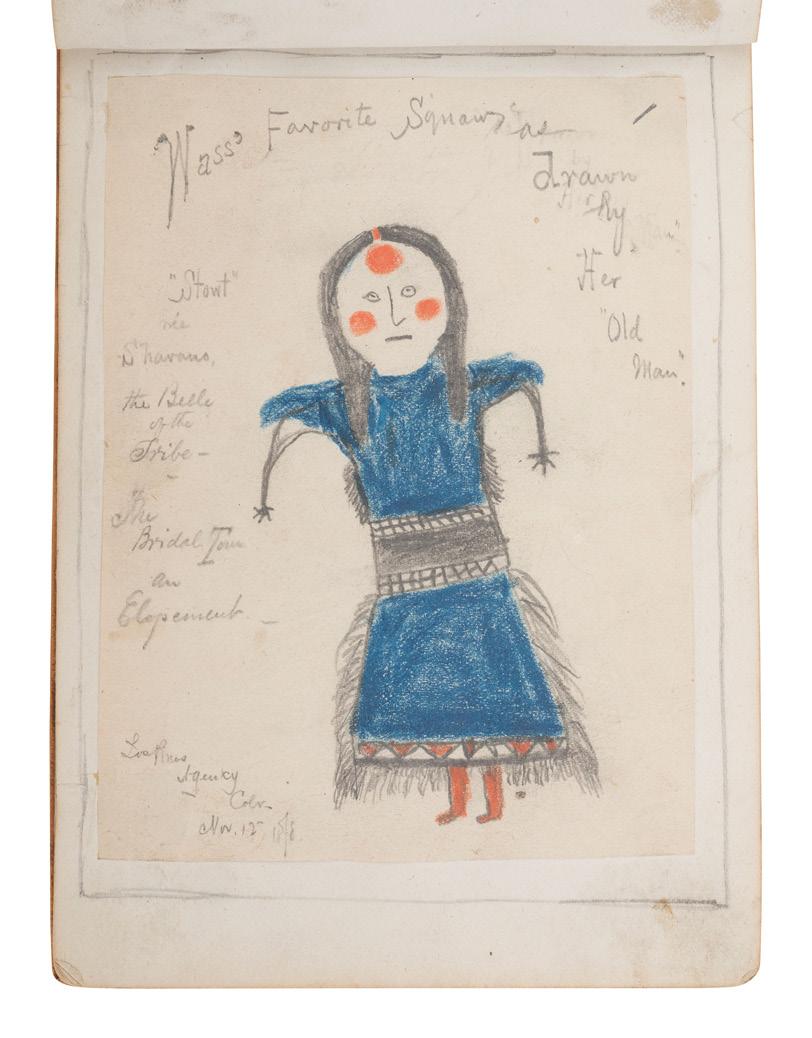 Wass' Favorite Squaw, as
Drawn
By
Her
"Old
Man".
"Stowt"
née
Shavano,
the Belle
of the
Tribe –
The
Bridal Tour
an
Elopement. –
Los Pinos
Agency
Colo.
Nov. 12